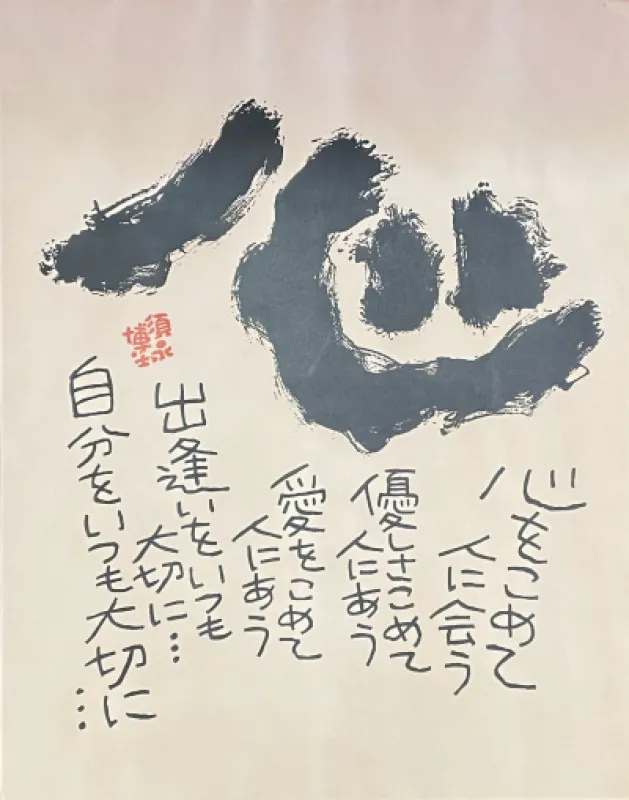 心
心をこめて
人に会う
優しさこめて
人にあう
愛をこめて
人にあう
出逢いをいつも
大切に…
自分をいつも大切に…
須永
博士